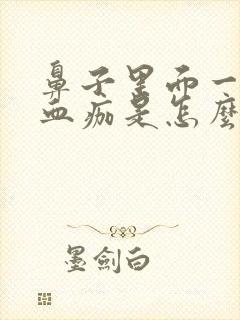 鼻子里面一
血痂是怎麼
墨劍白